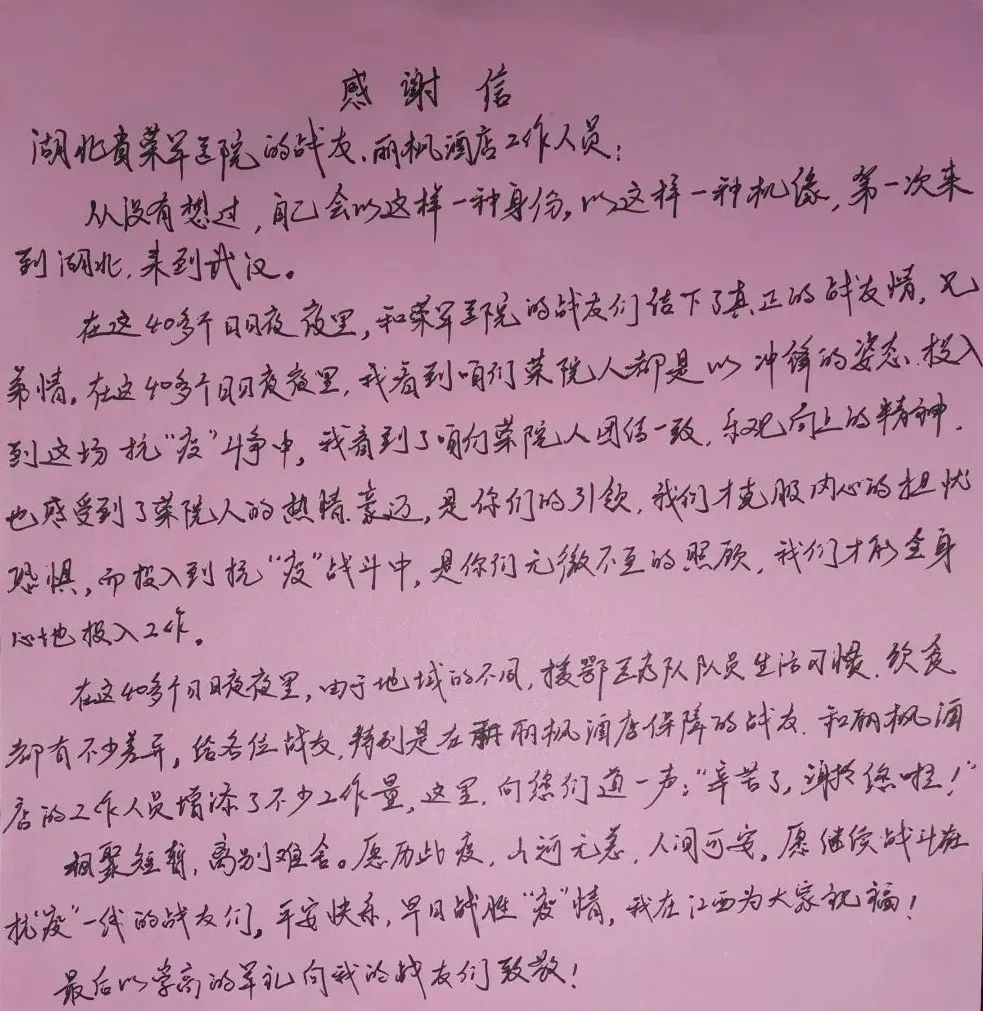 感谢信
湖北省荣军医院的战友、丽枫酒店工作人员：
从没有想过，自己会以这样一种身份，以这样一种机缘，第一次来
到湖北，来到武汉。
在这40多个日日夜夜里，和荣军医院的战友们结下了真正的战友情，兄
弟情。在这40多个日日夜夜里，我看到咱们荣院人都是以冲锋的姿态、投入
到这场抗“疫”斗争中，我看到了咱们荣院人团结一致、乐观向上的精神，
也感受到了荣院人的热情豪迈，是你们的引领，我们才克服内心的担忧
恐惧，而投入到抗“疫”战斗中，是你们无微不至的照顾，我们才能全身
心地投入工作。
在这40多个日日夜夜里，由于地域的不同，援鄂医疗队队员生活习惯、饮食
都有不少差异，给各位战友，特别是在丽枫酒店保障的战友、和丽枫酒
店的工作人员增添了不少工作量，这里，向您们道一声：“辛苦了，谢谢您啦！”
相聚短暂，离别难舍。愿历此疫，山河无恙，人间可安。愿继续战斗在
抗“疫”一线的战友们，平安快乐，早日战胜“疫”情，我在江西为大家祝福！
最后以崇高的军礼向我的战友们致敬！